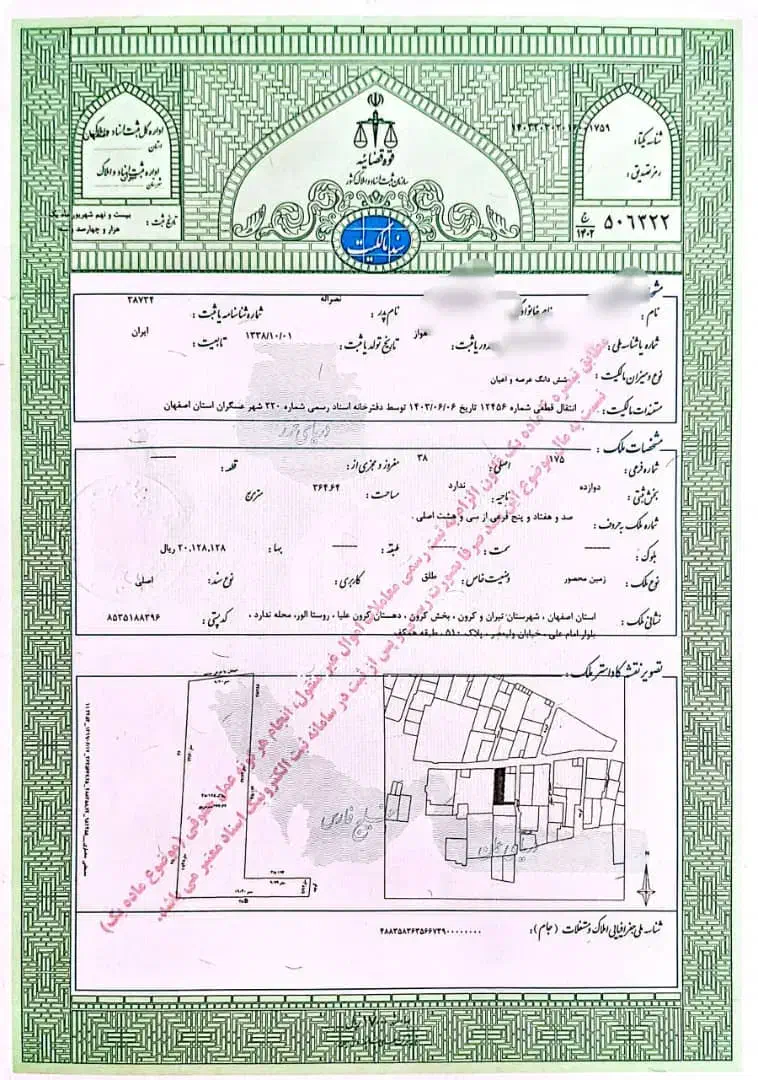 قوه قضائیه
سازمان ثبت اسناد و املاک کشور
سند مالکیت
اداره کل ثبت اسناد و املاک
استان
اداره ثبت اسناد و املاک
شهرستان
تاریخ ثبت : بیست و نهم شهریور ماه یک هزار و چهارصد و سه
شناسه یکتا:
رمز تصدیق:
۵۰۶۲۲۲ ج ۱۴۰۲
نام : نام خانوادگی نام پدر : نصراله شماره شناسنامه یا ثبت : ۲۸۷۲۴
شماره یا شناسه ملی : صدور یا ثبت : اهواز تاریخ تولد یا ثبت : ۱۳۳۸/۱۰/۰۱ تابعیت : ایران
نوع و میزان مالکیت : شش دانگ عرصه و اعیان
مستندات مالکیت : انتقال قطعی شماره ۱۲۴۵۶ تاریخ ۱۴۰۳/۰۶/۰۶ توسط دفترخانه اسناد رسمی شماره ۲۲۰ شهر عسگران استان اصفهان
دریای خزر
مشخصات ملک :
شماره فرعی : ۱۷۵ اصلی : ۳۸ مفروز و مجزی از : —— قطعه : ——
بخش ثبتی : دوازده ناحیه : ندارد مساحت : ۳۶۴.۶۴ مترمربع
شماره ملک به حروف : صد و هفتاد و پنج فرعی از سی و هشت اصلی .
بلوک : —— سمت : —— طبقه : —— بها : ۲۰,۱۲۸,۱۲۸ ریال
نوع ملک : زمین محصور وضعیت خاص : طلق کاربری : نوع سند : اصلی
نشانی ملک : استان اصفهان ، شهرستان تیران و کرون ، بخش کرون ، دهستان کرون علیا ، روستا الور، محله ندارد ، کد پستی : ۸۵۳۵۱۸۸۳۹۶
بلوار امام علی ، خیابان ولیعصر ، پلاک ۵۱۰ ، طبقه همکف
مطابق تبصره ماده یک قانون الزام به ثبت رسمی معاملات اموال غیر منقول، انجام هر گونه عمل حقوقی (موضوع ماده یک)
نسبت به مال موضوع این سند صرفا بصورت رسمی و پس از ثبت در سامانه ثبت الکترونیک اسناد معتبر می باشد.
تصویر نقشه کاداستر ملک :
خلیج فارس
دریای عمان
N
شناسه ملی جغرافیایی املاک و مستغلات (جام) :